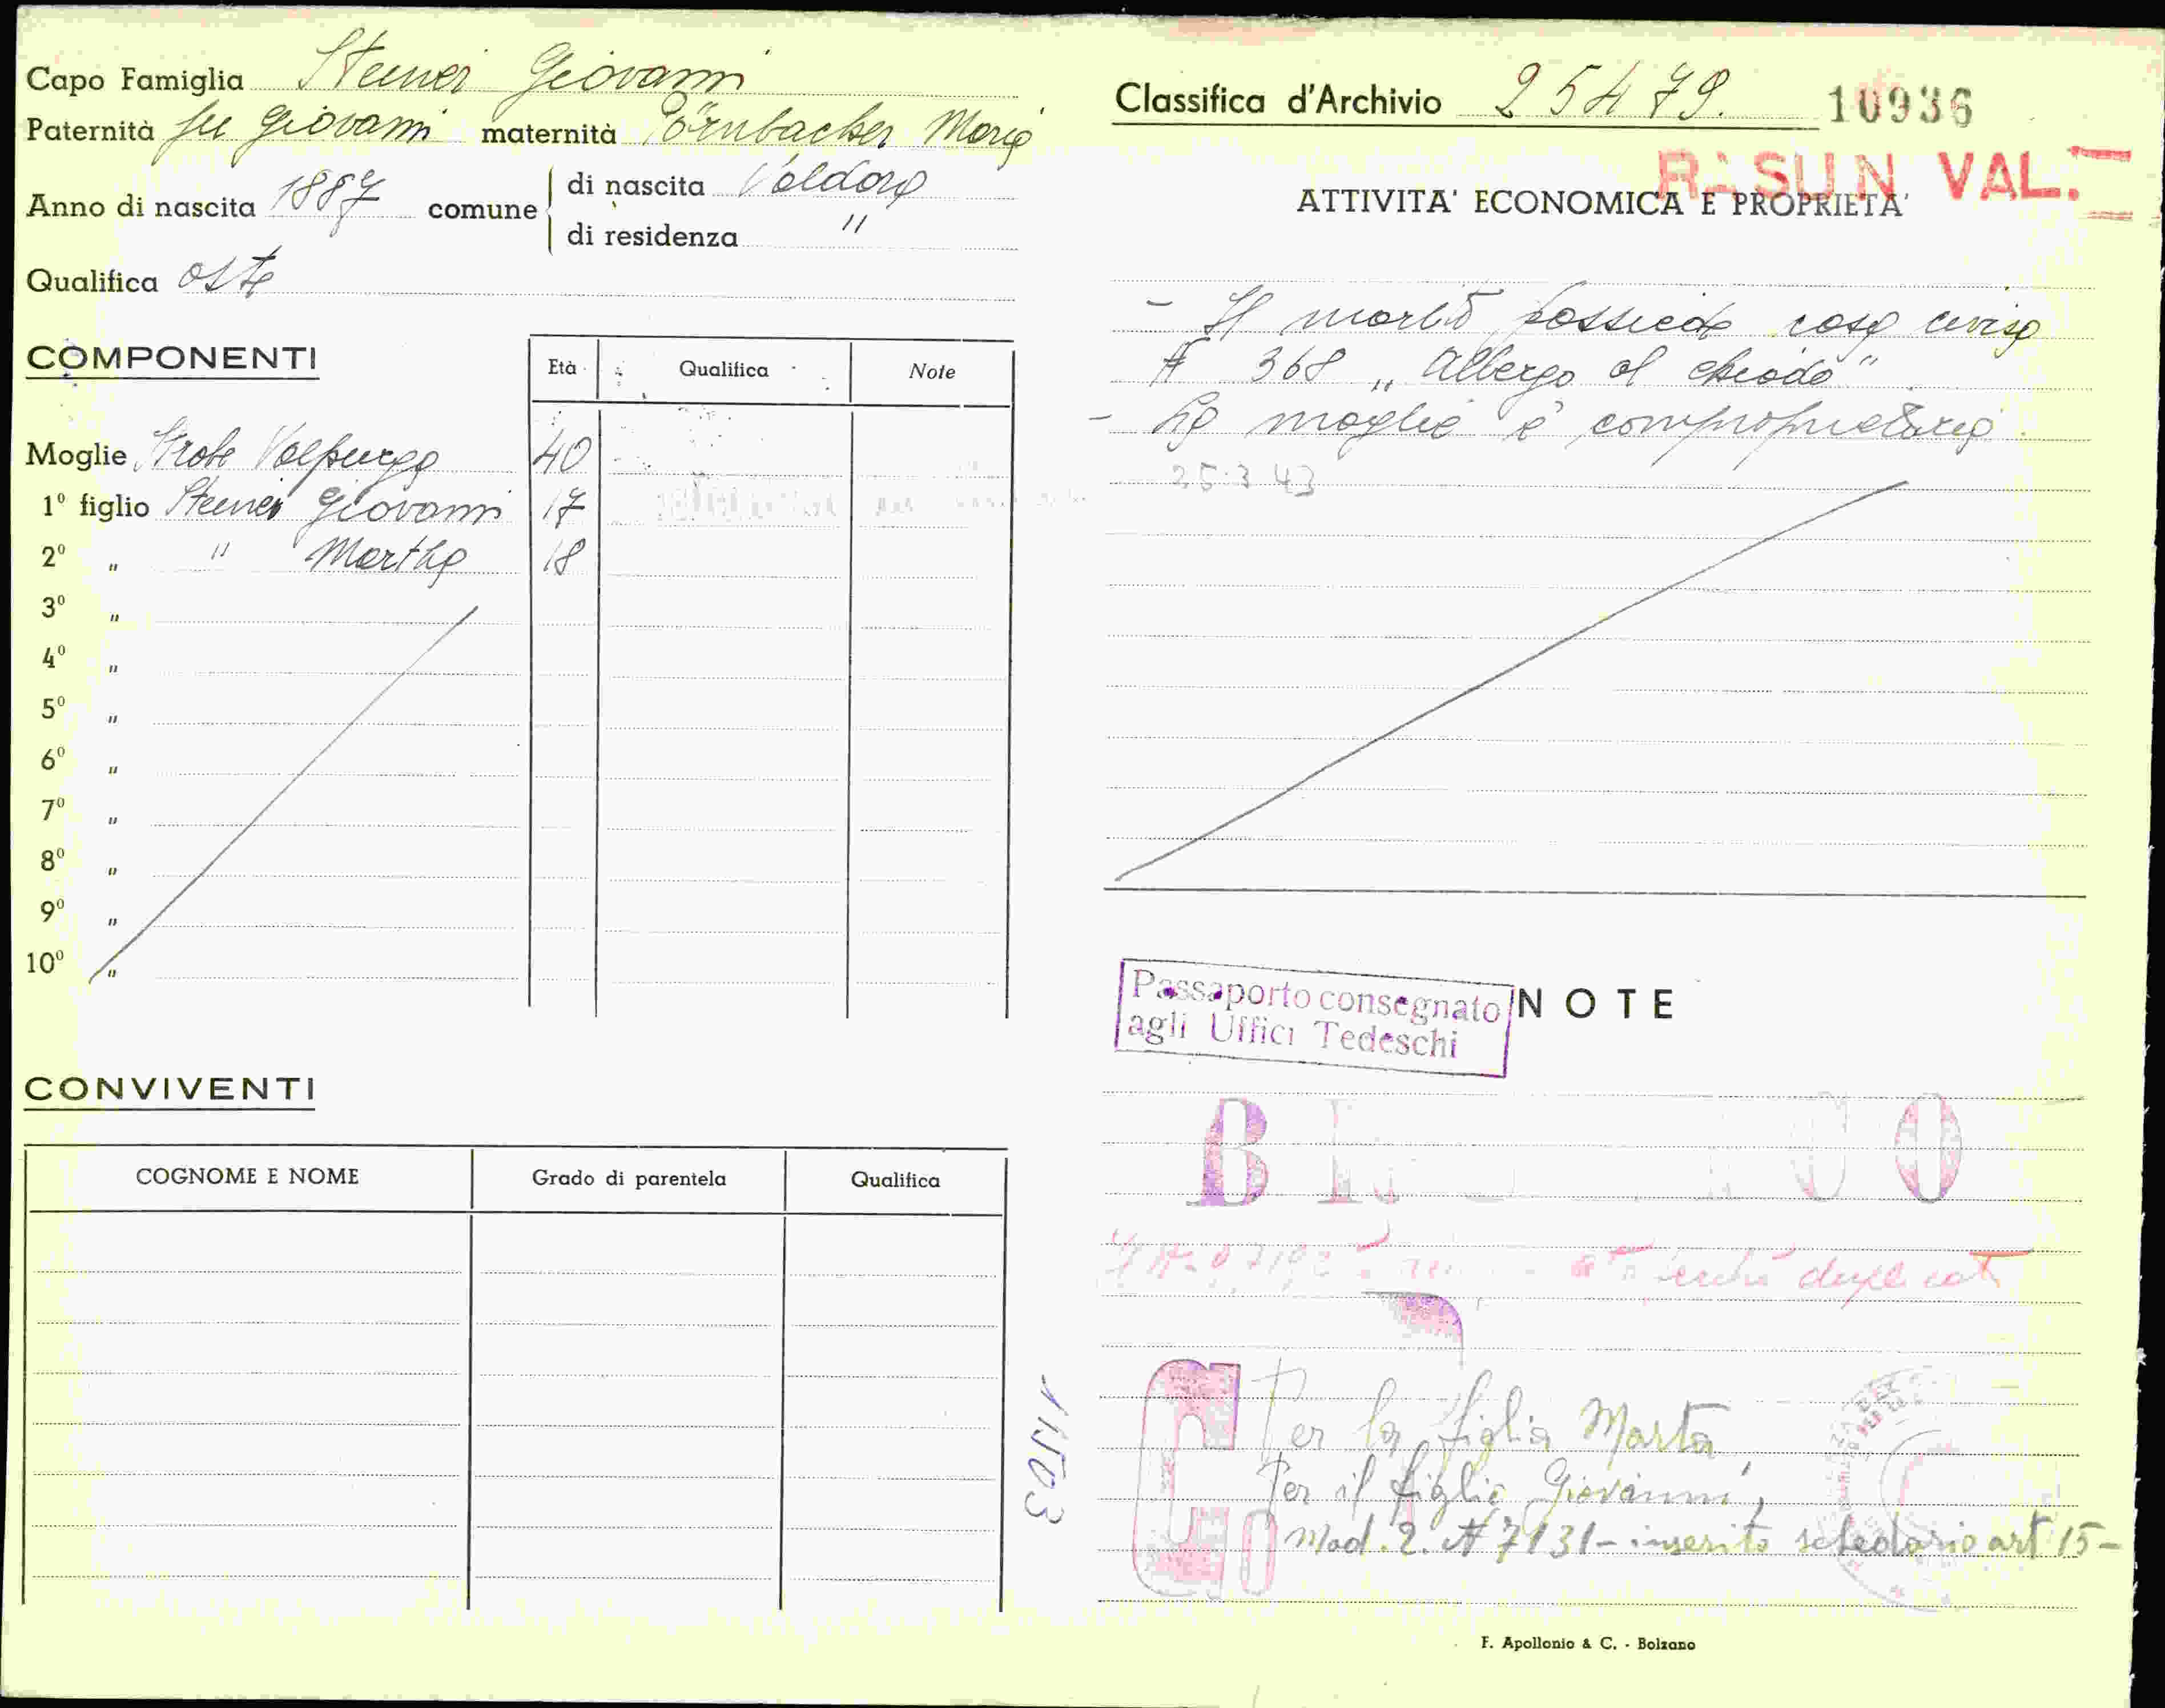 Capo Famiglia Steiner Giovanni
Paternità fu Giovanni maternità Pörnbacher Maria
Anno di nascita 1887 comune di nascita Valdaora
di residenza "
Qualifica oste
COMPONENTI
Età Qualifica Note
Moglie Strobl Valpurga 40
1º figlio Steiner Giovanni 17
2º " " Martha 18
3º "
4º "
5º "
6º "
7º "
8º "
9º "
10º "
CONVIVENTI
COGNOME E NOME Grado di parentela Qualifica
11503
Classifica d'Archivio 25479. 10936
RASUN VAL.
ATTIVITA' ECONOMICA E PROPRIETA'
- Il marito possiede casa civica
N 368 „Albergo al chiodo"
- La moglie è comproprietaria
25.3.43
Passaporto consegnato
agli Uffici Tedeschi
NOTE
duplicat
Per la figlia Marta
Per il figlio Giovanni,
Mod. 2. N 7131 - inserito schedario art 15 -
F. Apollonio & C. - Bolzano